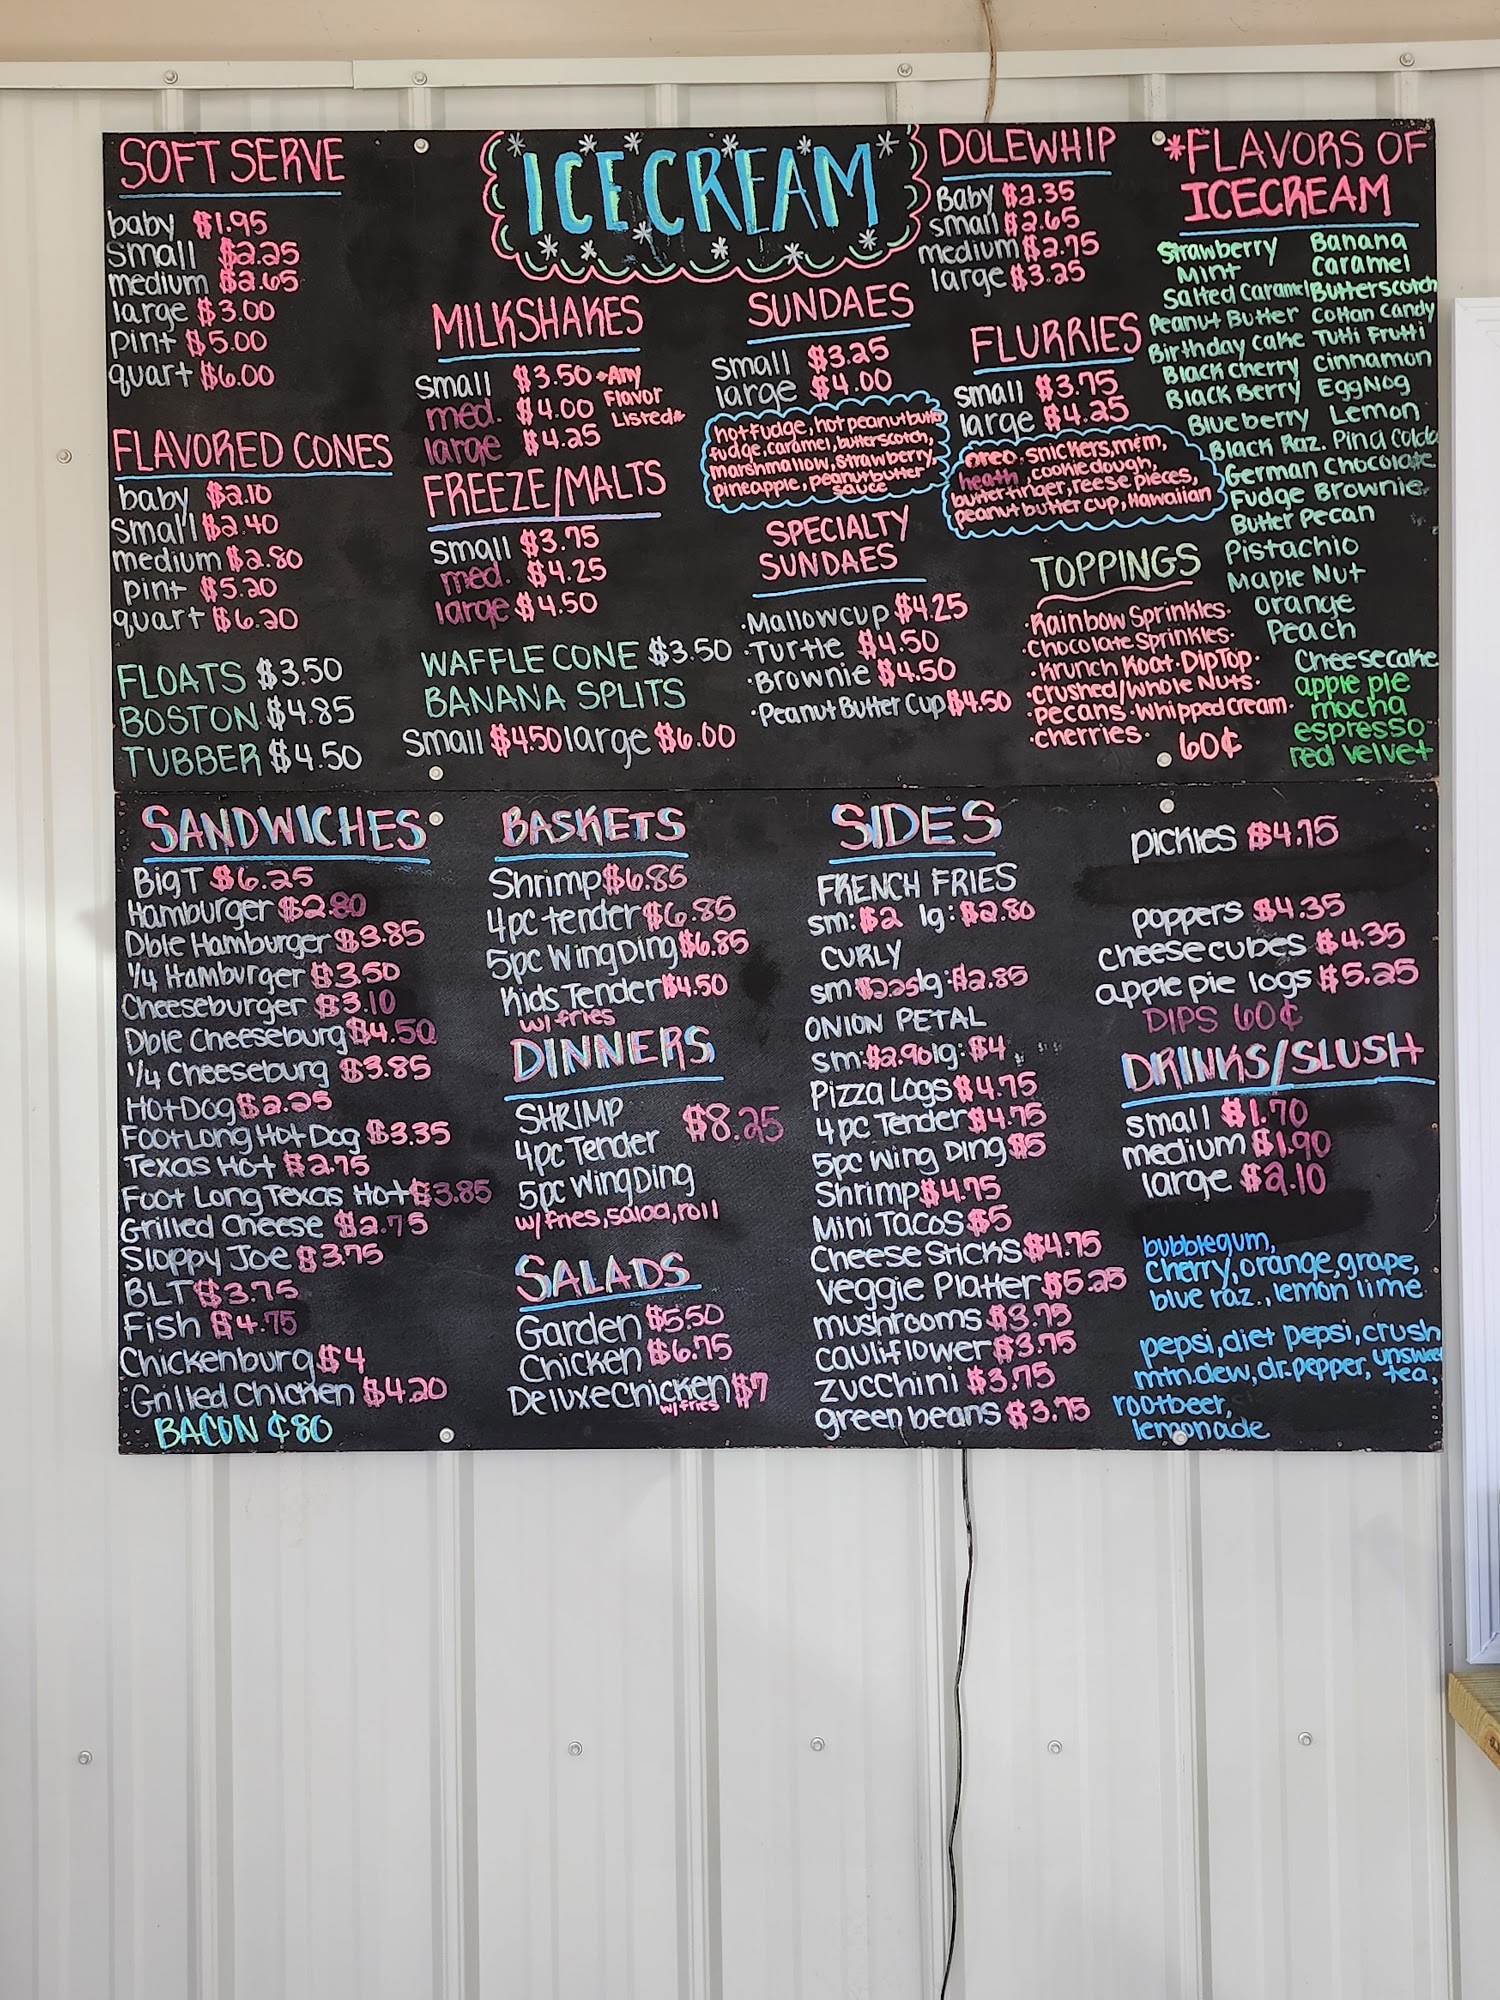 SOFT SERVE
baby $1.95
small $2.25
medium $2.65
large $3.00
pint $5.00
quart $6.00
FLAVORED CONES
baby $2.10
small $2.40
medium $2.80
pint $5.20
quart $6.20
FLOATS $3.50
BOSTON $4.85
TUBBER $4.50
ICECREAM
MILKSHAKES
small $3.50 *Any
med. $4.00 Flavor
large $4.25 Listed*
FREEZE/MALTS
small $3.75
med. $4.25
large $4.50
WAFFLE CONE $3.50
BANANA SPLITS
small $4.50 large $6.00
SUNDAES
small $3.25
large $4.00
hot fudge, hot peanut butter
fudge, caramel, butterscotch,
marshmallow, strawberry,
pineapple, peanutbutter
sauce
SPECIALTY
SUNDAES
·Mallowcup $4.25
·Turtle $4.50
·Brownie $4.50
·Peanut Butter Cup $4.50
DOLEWHIP
Baby $2.35
small $2.65
medium $2.75
large $3.25
FLURRIES
small $3.75
large $4.25
oreo, snickers, m&m,
heath, cookie dough,
butterfinger, reese pieces,
peanut butter cup, Hawaiian
TOPPINGS
·Rainbow Sprinkles·
·Chocolate Sprinkles·
·Krunch Koat·DipTop·
·crushed/Whole Nuts·
·pecans·Whipped cream·
·cherries· 60¢
*FLAVORS OF
ICECREAM
Strawberry Banana
Mint Caramel
Salted Caramel Butterscotch
Peanut Butter Cotton Candy
Birthday cake Tutti Frutti
Black cherry cinnamon
Black Berry EggNog
Blueberry Lemon
Black Raz. Pina Colada
German Chocolate
Fudge Brownie
Butter Pecan
Pistachio
Maple Nut
orange
Peach
Cheesecake
apple pie
mocha
espresso
red velvet
SANDWICHES
Big T $6.25
Hamburger $2.80
Dble Hamburger $3.85
1/4 Hamburger $3.50
Cheeseburger $3.10
Dble Cheeseburg $4.50
1/4 Cheeseburg $3.85
HotDog $2.25
Foot Long Hot Dog $3.35
Texas Hot $2.75
Foot Long Texas Hot $3.85
Grilled Cheese $2.75
Sloppy Joe $3.75
BLT $3.75
Fish $4.75
Chickenburg $4
Grilled Chicken $4.20
BACON ¢80
BASKETS
Shrimp $6.85
4pc tender $6.85
5pc WingDing $6.85
Kids Tender $4.50
w/ fries
DINNERS
SHRIMP $8.25
4pc Tender
5pc WingDing
w/ fries, salad, roll
SALADS
Garden $5.50
Chicken $6.75
Deluxe Chicken $7
w/ fries
SIDES
FRENCH FRIES
sm: $2 lg: $2.80
CURLY
sm $2.25 lg: $2.85
ONION PETAL
sm: $2.90 lg: $4
Pizza Logs $4.75
4pc Tender $4.75
5pc Wing Ding $5
Shrimp $4.75
Mini Tacos $5
Cheese Sticks $4.75
Veggie Platter $5.25
mushrooms $3.75
cauliflower $3.75
zucchini $3.75
green beans $3.75
pickles $4.75
poppers $4.35
cheese cubes $4.35
apple pie logs $5.25
DIPS 60¢
DRINKS/SLUSH
small $1.70
medium $1.90
large $2.10
bubblegum,
cherry, orange, grape,
blue raz., lemon lime
pepsi, diet pepsi, crush
mtn.dew, dr.pepper, unsweet
tea,
rootbeer,
lemonade